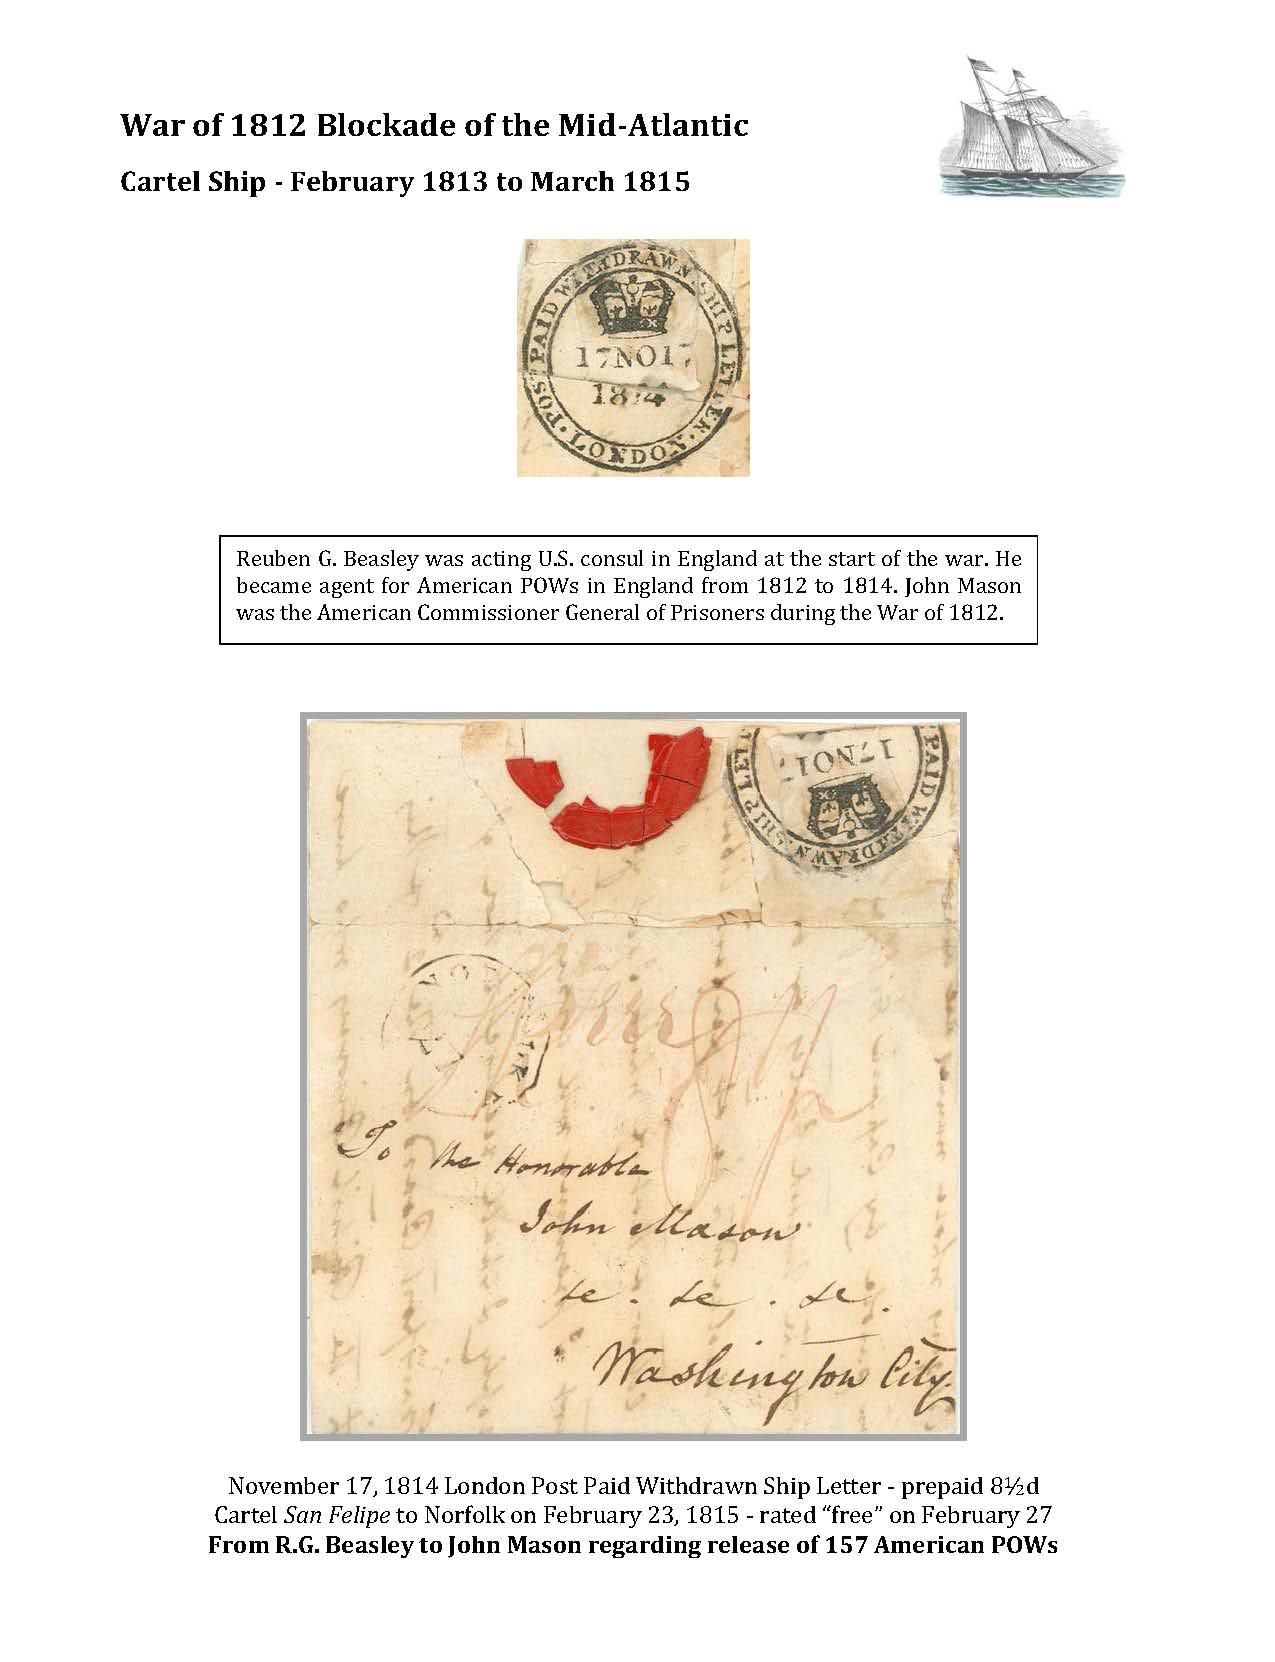 War of 1812 Blockade of the Mid-Atlantic
Cartel Ship - February 1813 to March 1815
POST PAID WITHDRAWN SHIP LETTER
17NO17
1814
LONDON
Reuben G. Beasley was acting U.S. consul in England at the start of the war. He
became agent for American POWs in England from 1812 to 1814. John Mason
was the American Commissioner General of Prisoners during the War of 1812.
SHIP LETT
PAID WITHDRAWN
17NO17
To the Honorable
John Mason
&c. &c. &c.
Washington City.
November 17, 1814 London Post Paid Withdrawn Ship Letter - prepaid 8½d
Cartel San Felipe to Norfolk on February 23, 1815 - rated “free” on February 27
From R.G. Beasley to John Mason regarding release of 157 American POWs